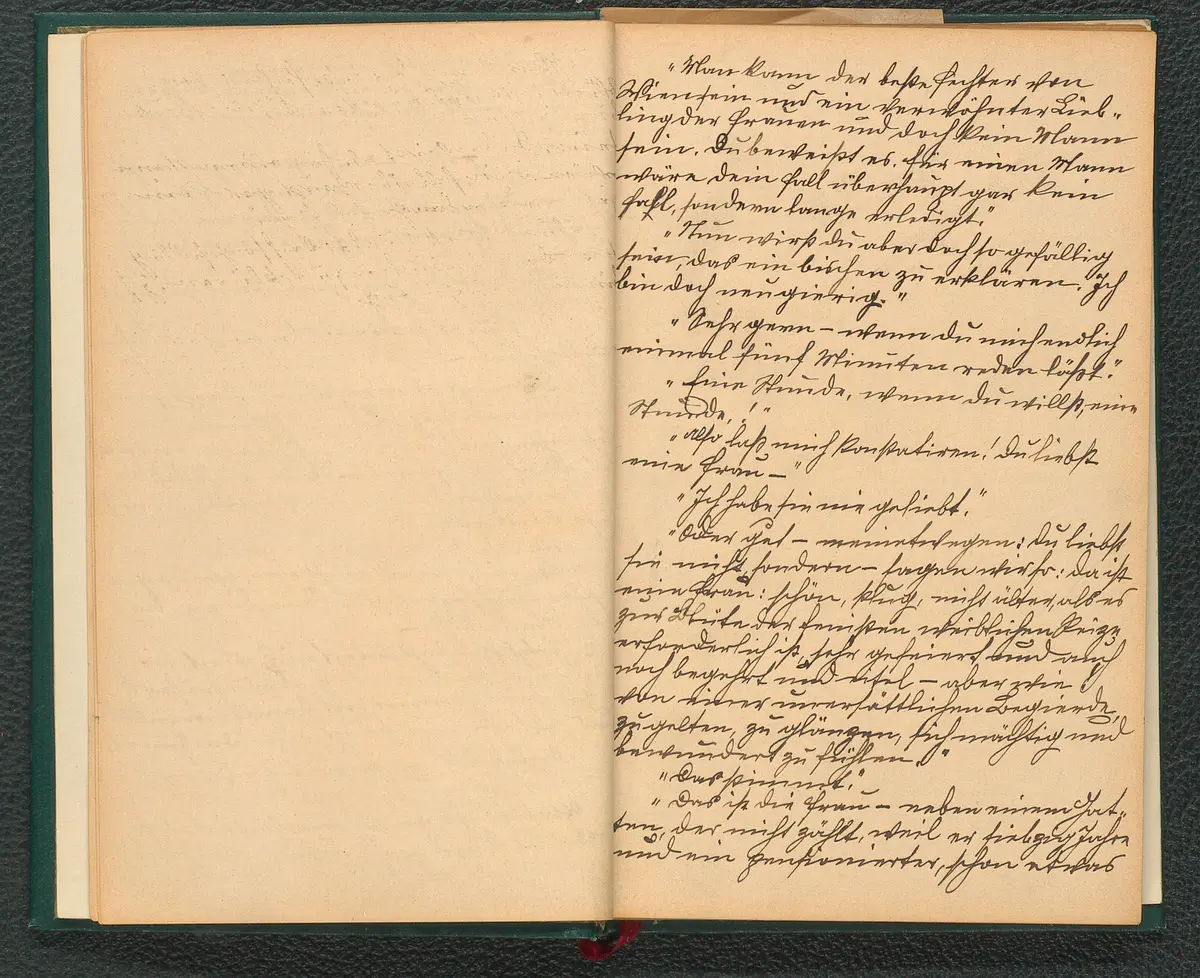 "Man kann der beste Fechter von
Wien sein und ein verwöhnter Lieb-
ling der Frauen und doch kein Mann
sein. Du beweißt es. Für einen Mann
wäre dein Fall überhaupt gar kein
Fall, sondern lange erledigt."
"Nun wirst du aber doch so gefällig
sein, das ein bischen zu erklären. Ich
bin doch neugierig."
"Sehr gern – wenn du mich endlich
einmal fünf Minuten reden läßt."
"Eine Stunde, wenn du willst, eine
Stunde!"
"Also laß mich konstatiren! Du liebst
eine Frau –"
"Ich habe sie nie geliebt."
"Oder gut – meinetwegen: du liebst
sie nicht, sondern – sagen wir so: da ist
eine Frau: schön, klug, nicht älter, als es
zur Blüte der feinsten weiblichen Reize
erforderlich ist, sehr gefeiert und auch
noch begehrt und eitel – aber wie!
von einer unersättlichen Begierde,
zu gelten, zu glänzen, sich mächtig und
bewundert zu fühlen."
"Das stimmt."
"Das ist die Frau – neben einem Gat-
ten, der nicht zählt, weil er siebzig Jahre
und ein pensionierter, schon etwas